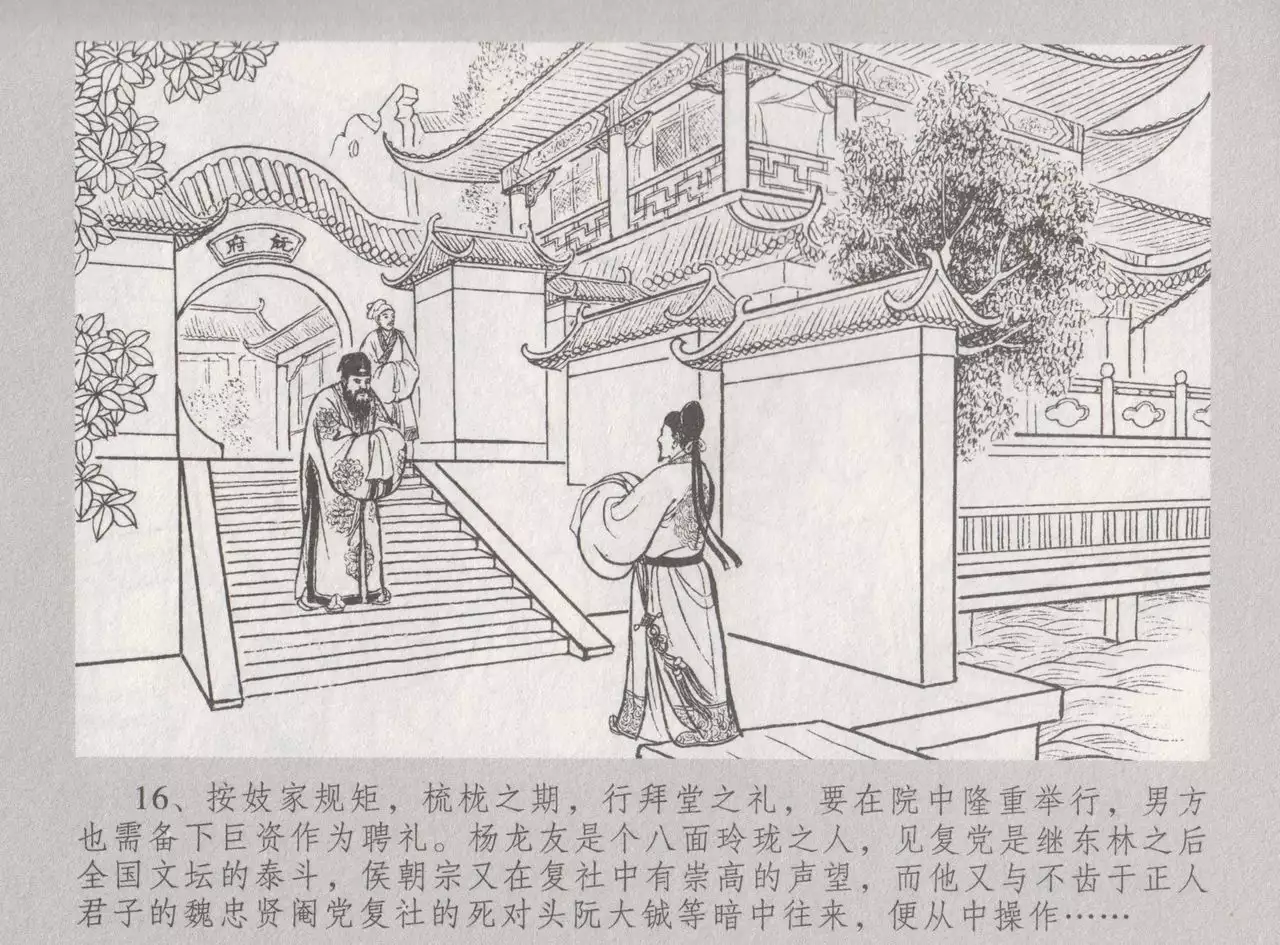 阮府
16、按妓家规矩，梳栊之期，行拜堂之礼，要在院中隆重举行，男方
也需备下巨资作为聘礼。杨龙友是个八面玲珑之人，见复党是继东林之后
全国文坛的泰斗，侯朝宗又在复社中有崇高的声望，而他又与不齿于正人
君子的魏忠贤阉党复社的死对头阮大铖等暗中往来，便从中操作……